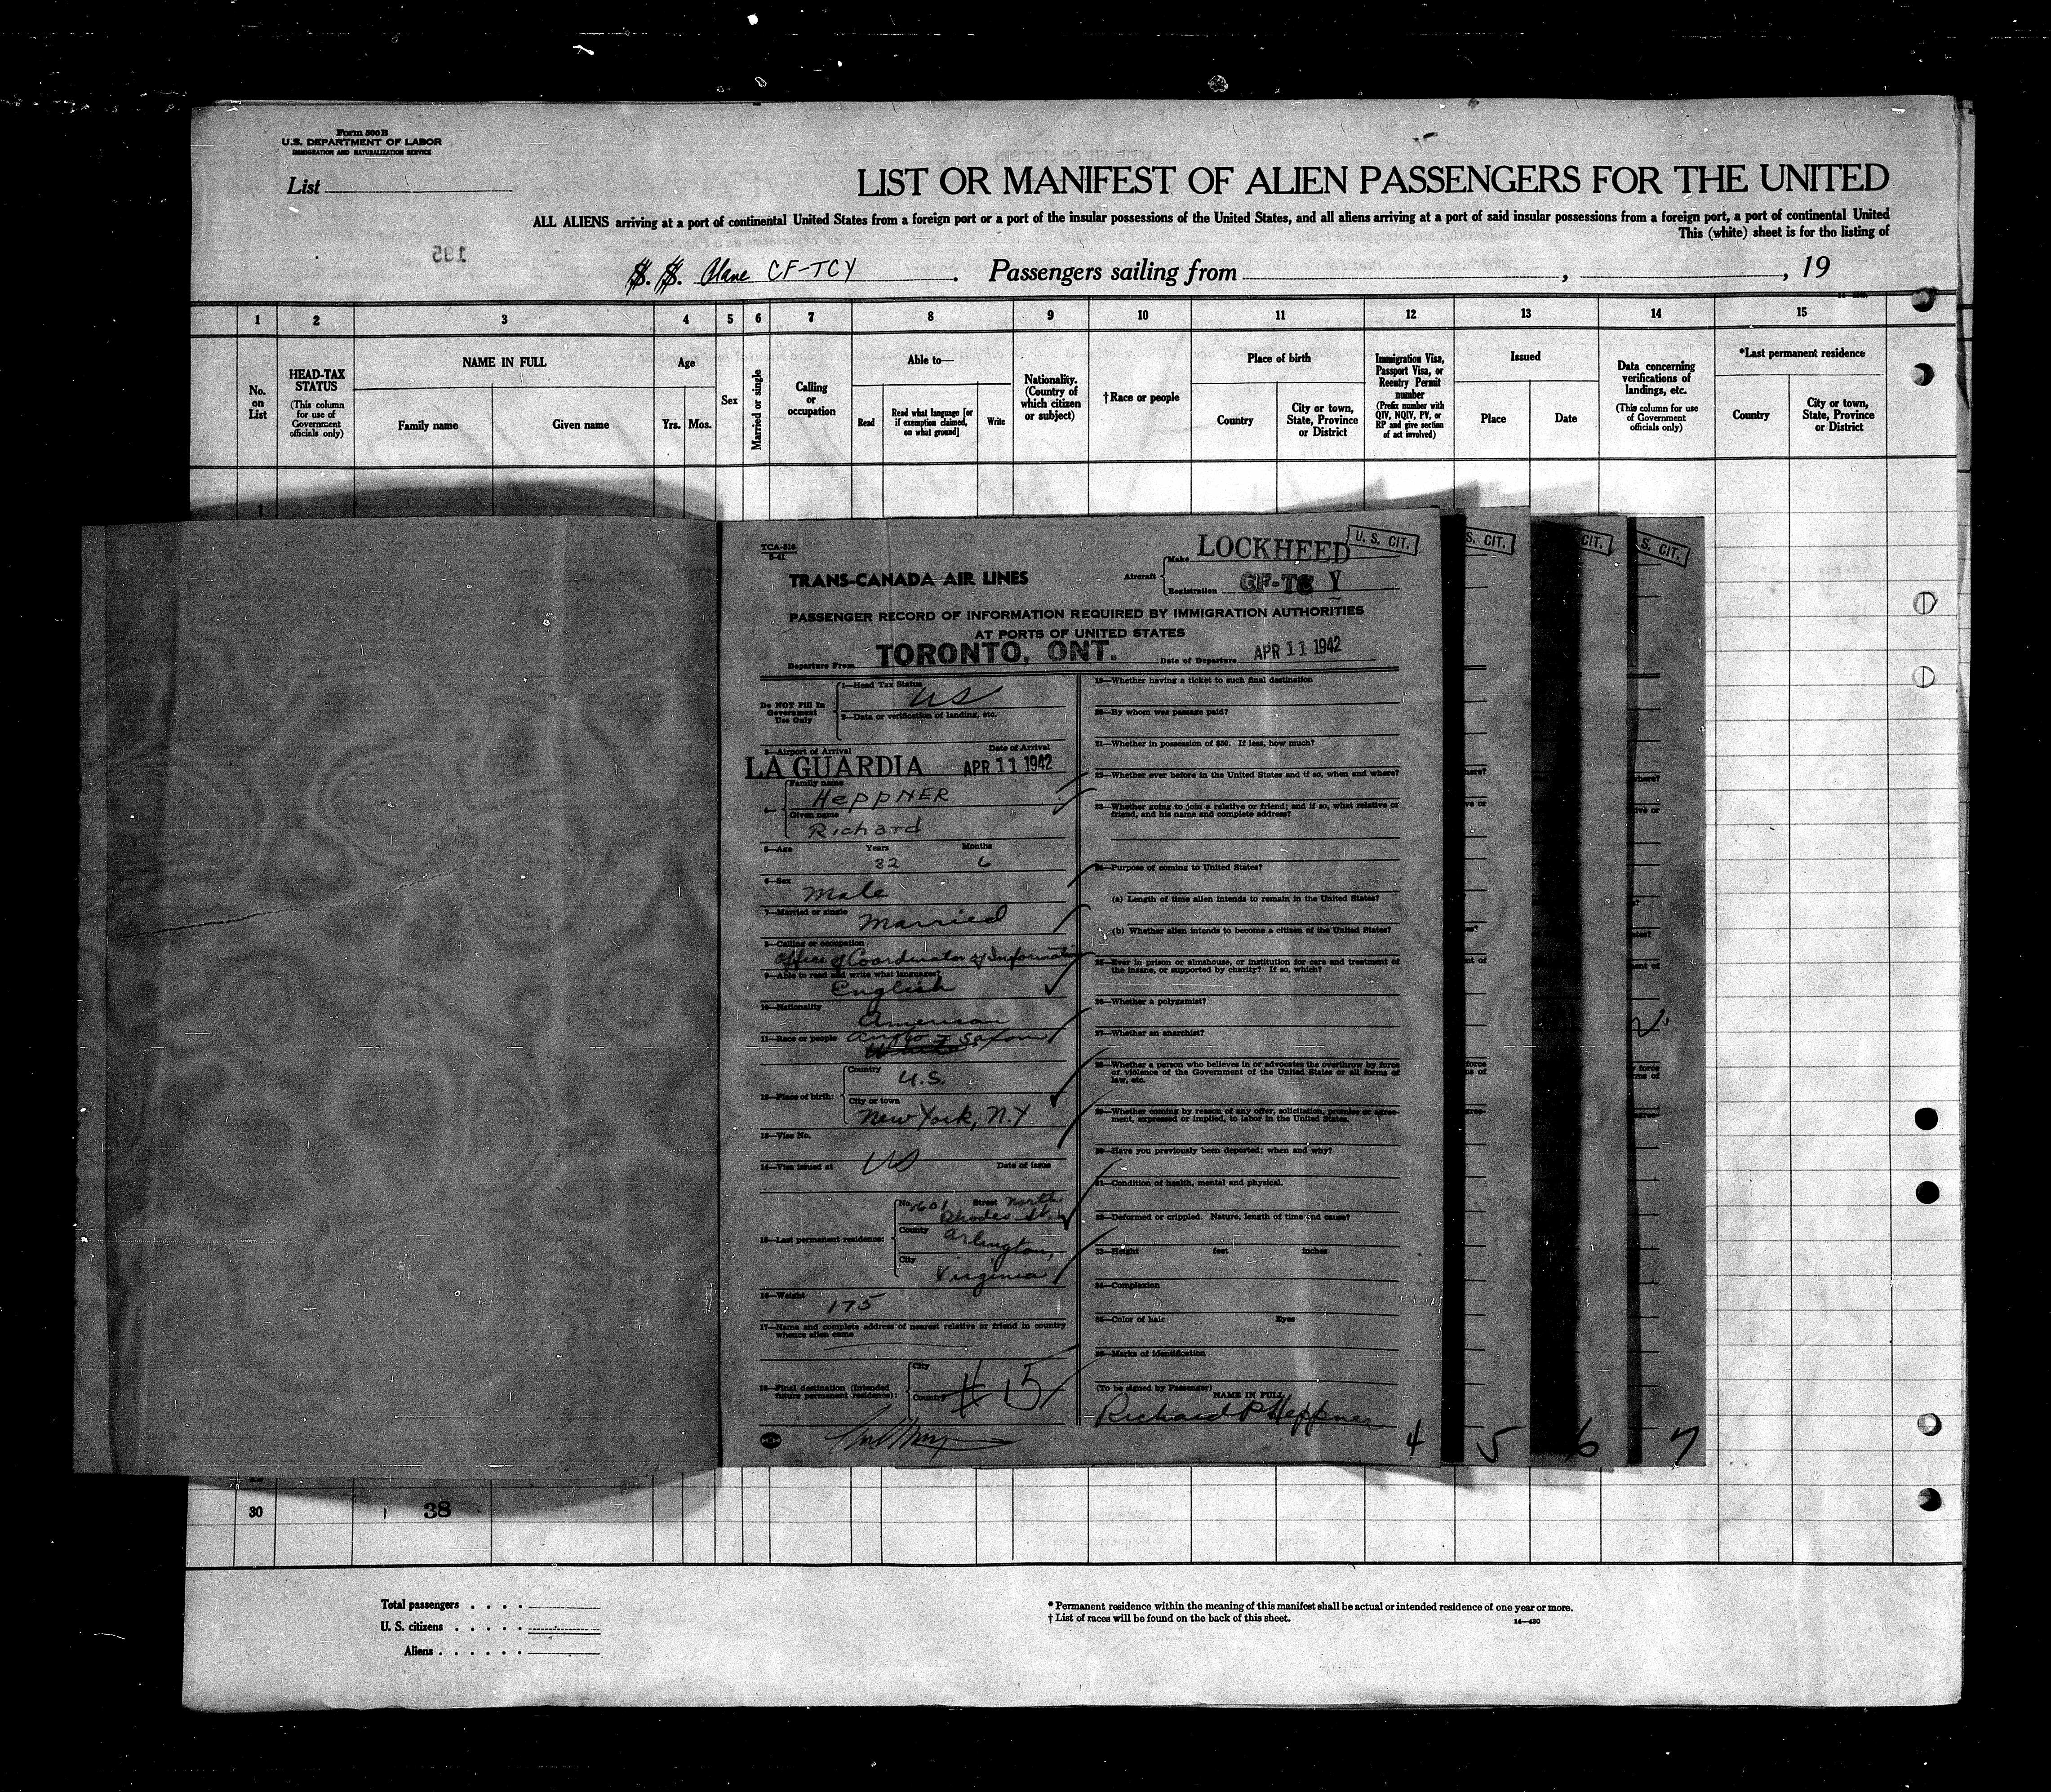 Form 500 B
U.S. DEPARTMENT OF LABOR
IMMIGRATION AND NATURALIZATION SERVICE
List
LIST OR MANIFEST OF ALIEN PASSENGERS FOR THE UNITED
ALL ALIENS arriving at a port of continental United States from a foreign port or a port of the insular possessions of the United States, and all aliens arriving at a port of said insular possessions from a foreign port, a port of continental United
This (white) sheet is for the listing of
195
S. S. Plane CF-TCY . Passengers sailing from , , 19
1 2 3 4 5 6 7 8 9 10 11 12 13 14 15
No. on List
HEAD-TAX STATUS
(This column for use of Government officials only)
NAME IN FULL
Family name Given name
Age
Yrs. Mos.
Sex
Married or single
Calling or occupation
Able to—
Read
Read what language [or if exemption claimed, on what ground]
Write
Nationality. (Country of which citizen or subject)
†Race or people
Place of birth
Country
City or town, State, Province or District
Immigration Visa, Passport Visa, or Reentry Permit number
(Prefix number with QIV, NQIV, PV, or RP and give section of act involved)
Issued
Place Date
Data concerning verifications of landings, etc.
(This column for use of Government officials only)
*Last permanent residence
Country
City or town, State, Province or District
1
TCA-518
TRANS-CANADA AIR LINES
Aircraft
Make LOCKHEED
Registration CF-TC Y
U. S. CIT.
S. CIT.
CIT.
S. CIT.
PASSENGER RECORD OF INFORMATION REQUIRED BY IMMIGRATION AUTHORITIES
AT PORTS OF UNITED STATES
Departure From TORONTO, ONT. Date of Departure APR 11 1942
Do NOT Fill In Government Use Only
1—Head Tax Status US
2—Data or verification of landing, etc.
3—Airport of Arrival Date of Arrival
LA GUARDIA APR 11 1942
4—
Family name
HEPPNER
Given name
Richard
5—Age Years Months
32 6
6—Sex
Male
7—Married or single Married
8—Calling or occupation
Office of Coordinator of Information
9—Able to read and write what languages?
English
10—Nationality
American
11—Race or people Anglo-Saxon
12—Place of birth:
Country U.S.
City or town
New York, N.Y
13—Visa No.
14—Visa issued at US Date of issue
15—Last permanent residence:
No. 1601 Street North
Rhodes St.
County Arlington,
City
Virginia
16—Weight
175
17—Name and complete address of nearest relative or friend in country
whence alien came
18—Final destination (Intended
future permanent residence):
City
Country
15
19—Whether having a ticket to such final destination
20—By whom was passage paid?
21—Whether in possession of $50. If less, how much?
22—Whether ever before in the United States and if so, when and where?
23—Whether going to join a relative or friend; and if so, what relative or
friend, and his name and complete address?
24—Purpose of coming to United States?
(a) Length of time alien intends to remain in the United States?
(b) Whether alien intends to become a citizen of the United States?
25—Ever in prison or almshouse, or institution for care and treatment of
the insane, or supported by charity? If so, which?
26—Whether a polygamist?
27—Whether an anarchist?
28—Whether a person who believes in or advocates the overthrow by force
or violence of the Government of the United States or all forms of
law, etc.
29—Whether coming by reason of any offer, solicitation, promise or agree-
ment, expressed or implied, to labor in the United States.
30—Have you previously been deported; when and why?
31—Condition of health, mental and physical.
32—Deformed or crippled. Nature, length of time and cause?
33—Height feet inches
34—Complexion
35—Color of hair Eyes
36—Marks of identification
(To be signed by Passenger)
NAME IN FULL
Richard P Heppner
4 5 6 7
30 38
Total passengers . . . .
U. S. citizens . . . . .
Aliens . . . . . .
* Permanent residence within the meaning of this manifest shall be actual or intended residence of one year or more.
† List of races will be found on the back of this sheet.
14—430